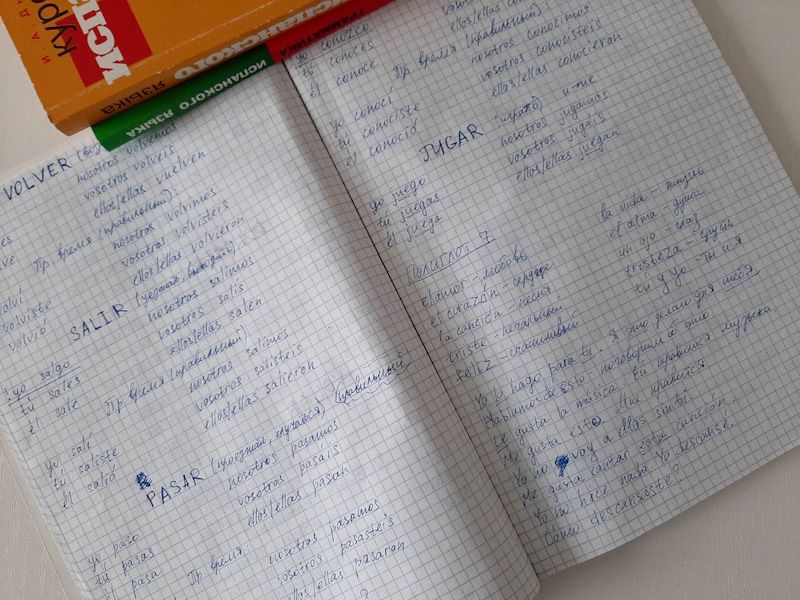 КУРС
ИСПАНСКОГО
ЯЗЫКА
ГРАММАТИКА
ИСПАНСКОГО ЯЗЫКА
VOLVER
nosotros volvemos
vosotros volveis
ellos/ellas vuelven
Пр. время (правильный):
volví nosotros volvimos
volviste vosotros volvisteis
volvió ellos/ellas volvieron
SALIR (уезжать, выходить)
! yo salgo nosotros salimos
tú sales vosotros salís
él sale ellos/ellas salen
Пр. время (правильный)
yo salí nosotros salimos
tú saliste vosotros salisteis
él salió ellos/ellas salieron
PASAR (проезжать, случаться) (правильный)
yo paso nosotros pasamos
tú pasas vosotros pasais
él pasa ellos/ellas pasan
Пр. время nosotros pasamos
vosotros pasasteis
ellos/ellas pasaron
yo conozco
tú conoces
él conoce
Пр. время (правильный):
yo conocí nosotros conocimos
tú conociste vosotros conocisteis
él conoció ellos/ellas conocieron
JUGAR (играть) u→ue
yo juego nosotros jugamos
tú juegas vosotros jugais
él juega ellos/ellas juegan
Полиглот 7
el amor – любовь
el corazón – сердце
la canción – песня
triste – печальный
feliz – счастливый
la vida – жизнь
el alma душа
un ojo – глаз
tristeza – грусть
tú y yo – ты и я
Yo lo hago para ti. Я это делаю для тебя
Hablamos de esto. поговорили о это
Le gusta la música. Ей нравится музыка.
Me gusta esto. Мне нравится.
Yo no voy a ellos sin ti.
Me gusta cantar esta canción.
Yo no hace nada. Yo descanse.
Cómo descansaste?